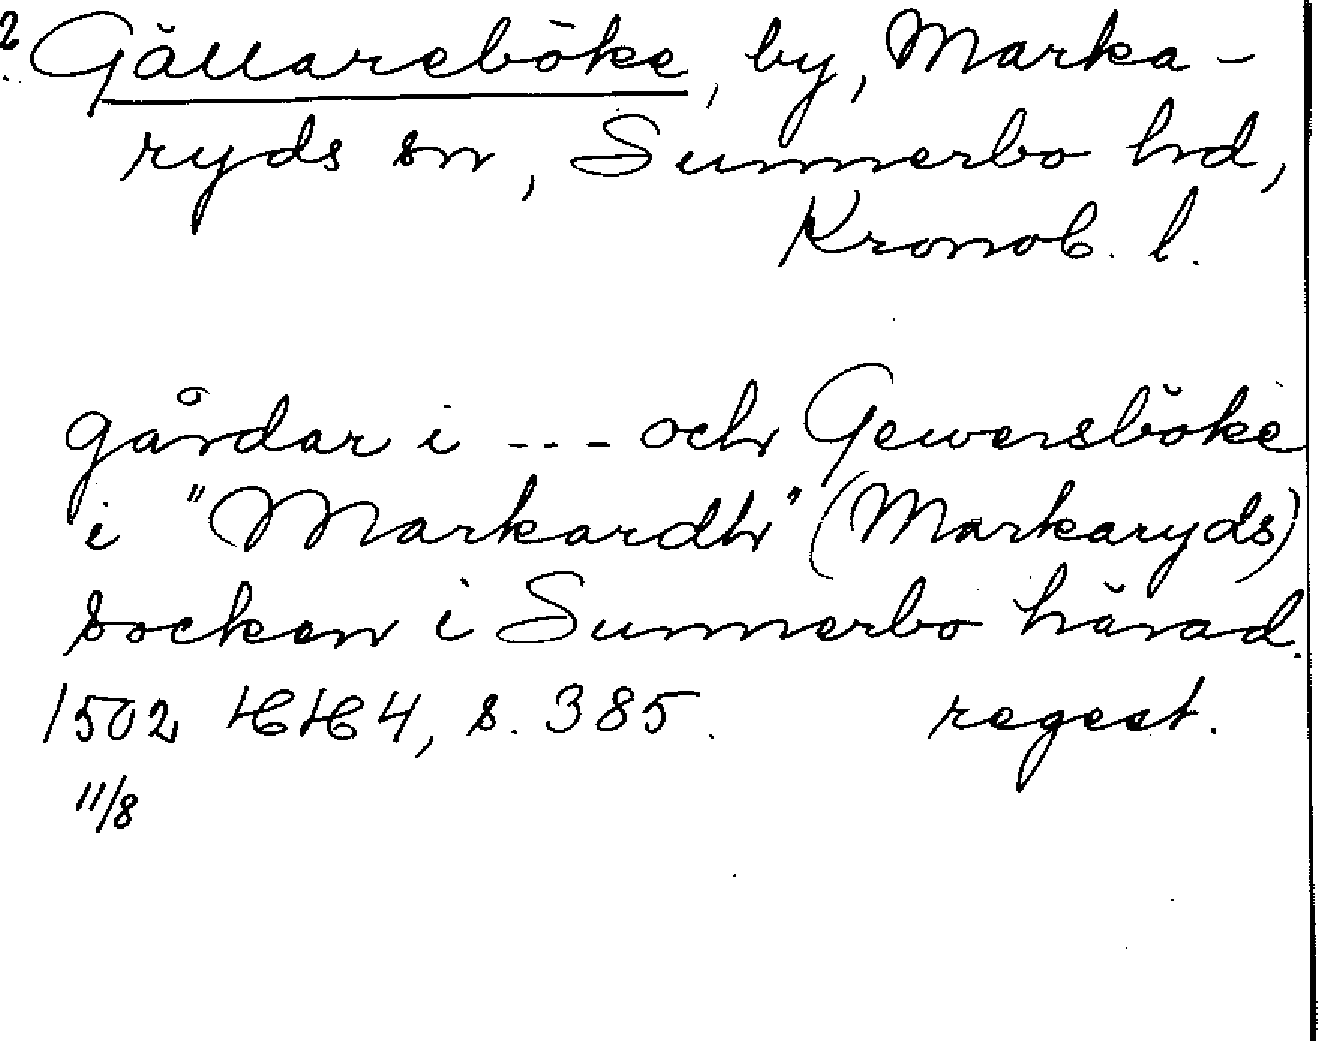 Gällareböke, by, Marka-
ryds sn, Sunnerbo hd,
Kronob. l.
gårdar i --- och Gewersböke
i "Markardh" (Markaryds)
socken i Sunnerbo härad.
1502 HH4, s. 385. regest.
11/8